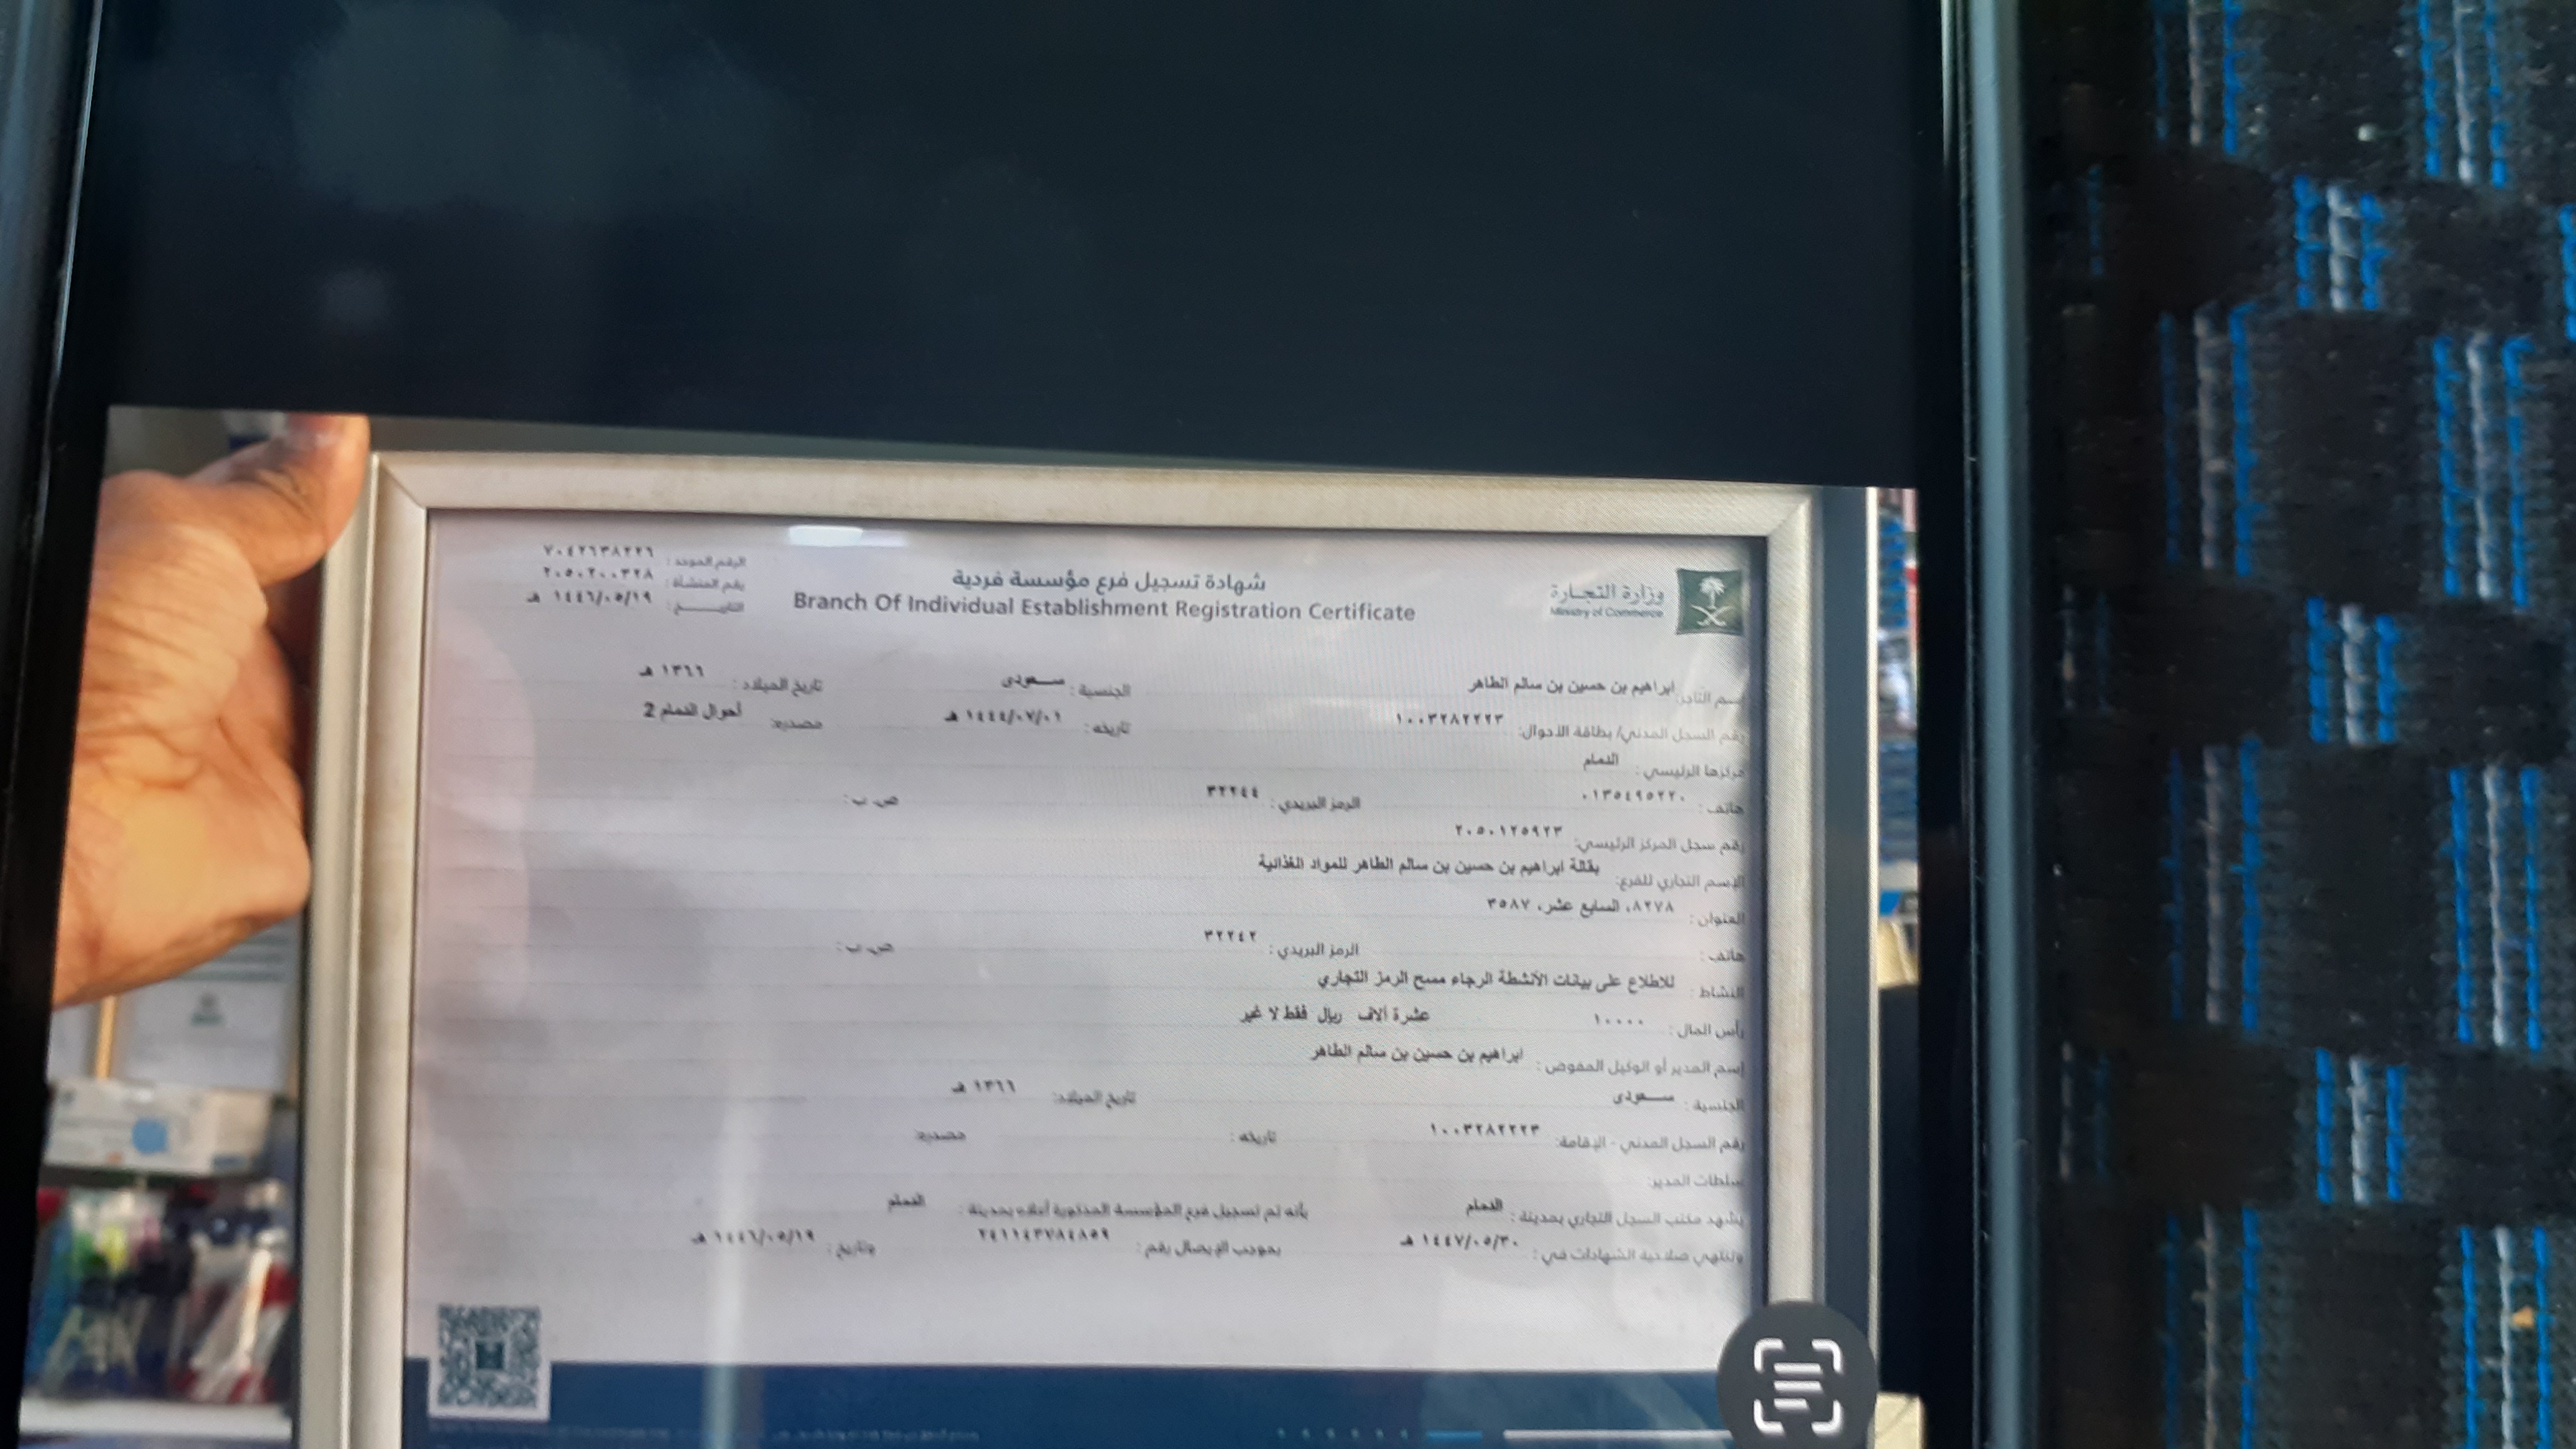 وزارة التجارة
Ministry of Commerce
شهادة تسجيل فرع مؤسسة فردية
Branch Of Individual Establishment Registration Certificate
الرقم الموحد : ٧٠٤٢٦٣٨٢٢٦
رقم المنشأة : ٢٠٥٠٢٠٠٣٢٨
التاريـــــخ : ١٤٤٦/٠٥/١٩ هـ
إسم التاجر: ابراهيم بن حسين بن سالم الطاهر الجنسية : ســـعودى تاريخ الميلاد : ١٣٦٦ هـ
رقم السجل المدني/ بطاقة الأحوال: ١٠٠٣٢٨٢٢٢٣ تاريخه : ١٤٤٤/٠٧/٠١ هـ مصدره: أحوال الدمام 2
مركزها الرئيسي : الدمام
هاتف : ٠١٣٥٤٩٥٢٢٠ الرمز البريدي : ٣٢٢٤٤ ص. ب :
رقم سجل المركز الرئيسي: ٢٠٥٠١٢٥٩٢٣
الإسم التجاري للفرع: بقالة ابراهيم بن حسين بن سالم الطاهر للمواد الغذائية
العنوان : ٨٢٧٨، السابع عشر، ٣٥٨٧
هاتف : الرمز البريدي : ٣٢٢٤٢ ص. ب :
النشاط : للاطلاع على بيانات الأنشطة الرجاء مسح الرمز التجاري
رأس المال : ١٠٠٠٠ عشرة آلاف ريال فقط لا غير
إسم المدير أو الوكيل المفوض : ابراهيم بن حسين بن سالم الطاهر
الجنسية : ســـعودى تاريخ الميلاد: ١٣٦٦ هـ
رقم السجل المدني - الإقامة: ١٠٠٣٢٨٢٢٢٣ تاريخه : مصدره:
سلطات المدير:
يشهد مكتب السجل التجاري بمدينة : الدمام بأنه تم تسجيل فرع المؤسسة المذكورة أعلاه بمدينة : الدمام
وتنتهي صلاحية الشهادات في : ١٤٤٧/٠٥/٣٠ هـ بموجب الإيصال رقم : ٢٤١١٤٣٧٨٤٨٥٩ وتاريخ : ١٤٤٦/٠٥/١٩ هـ